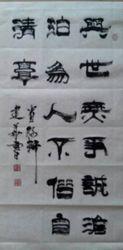 與世無爭誠淡
泊為人不俗自
清高